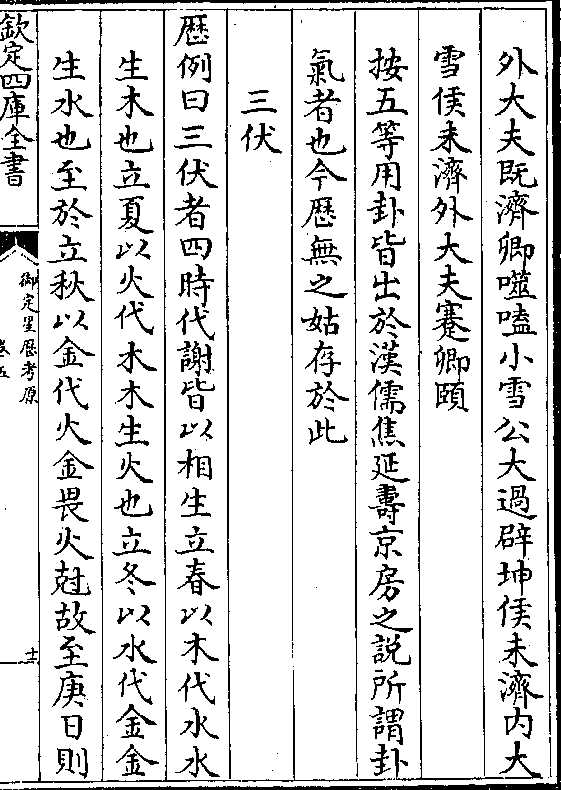 外大夫既濟卿噬嗑小雪公大過辟坤侯未濟内大
雪侯未濟外大夫蹇卿頤
按五等用卦皆出於漢儒焦延壽京房之説所謂卦
氣者也今歴無之姑存於此
三伏
歴例曰三伏者四時代謝皆以相生立春以木代水水
生木也立夏以火代木木生火也立冬以水代金金
生水也至於立秋以金代火金畏火尅故至庚日則
欽定四庫全書
御定星歴考原
卷五
十三